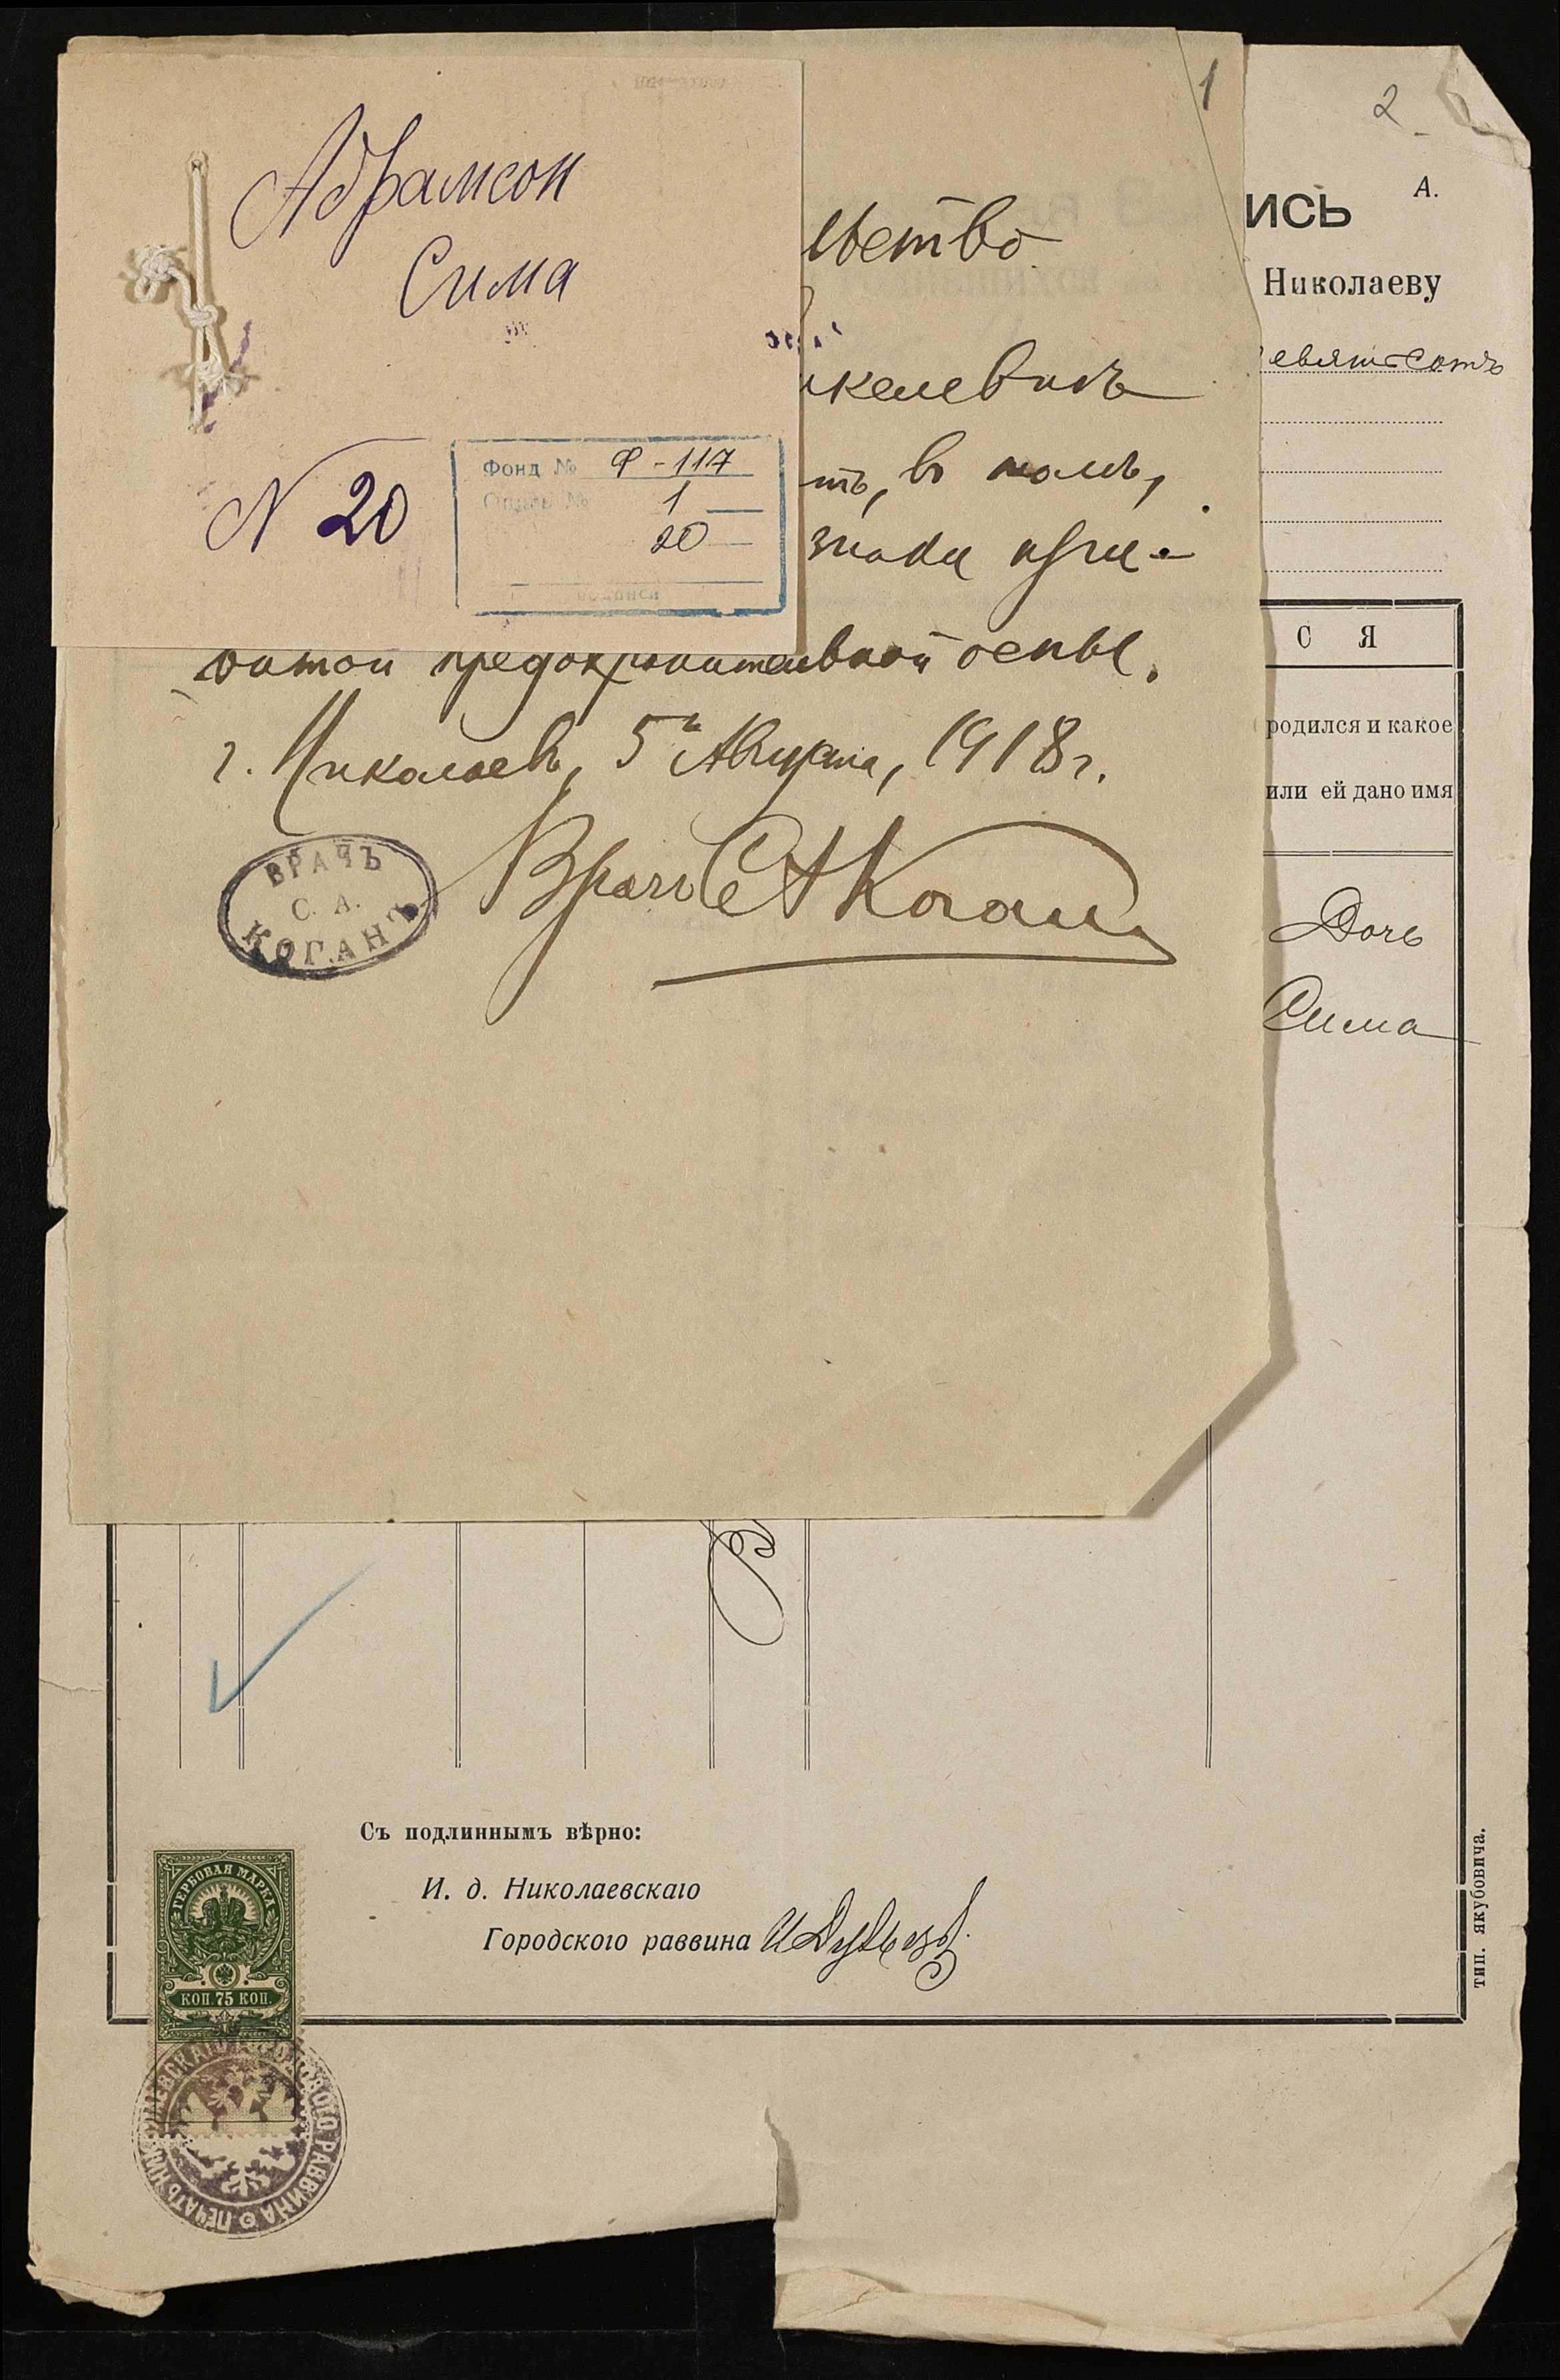 Абрамсон
Сима
N 20
Фонд № Ф-117
Опись № 1
20
1
льство
келевичъ
тъ, въ томъ,
знаки при-
витой предохранительной оспы.
г. Николаевъ, 5го Августа, 1918 г.
Врачъ С А Коганъ
ВРАЧЪ
С. А.
КОГАНЪ
2
А.
ИСЬ
Николаеву
девятьсотъ
С Я
родился и какое
или ей дано имя
Дочь
Сима
Съ подлиннымъ вѣрно:
И. д. Николаевскаго
Городского раввина
ГЕРБОВАЯ МАРКА
КОП. 75 КОП.
ПЕЧАТЬ НИКОЛАЕВСКАГО ГОРОДОВОГО РАВВИНА
тип. якубовича.